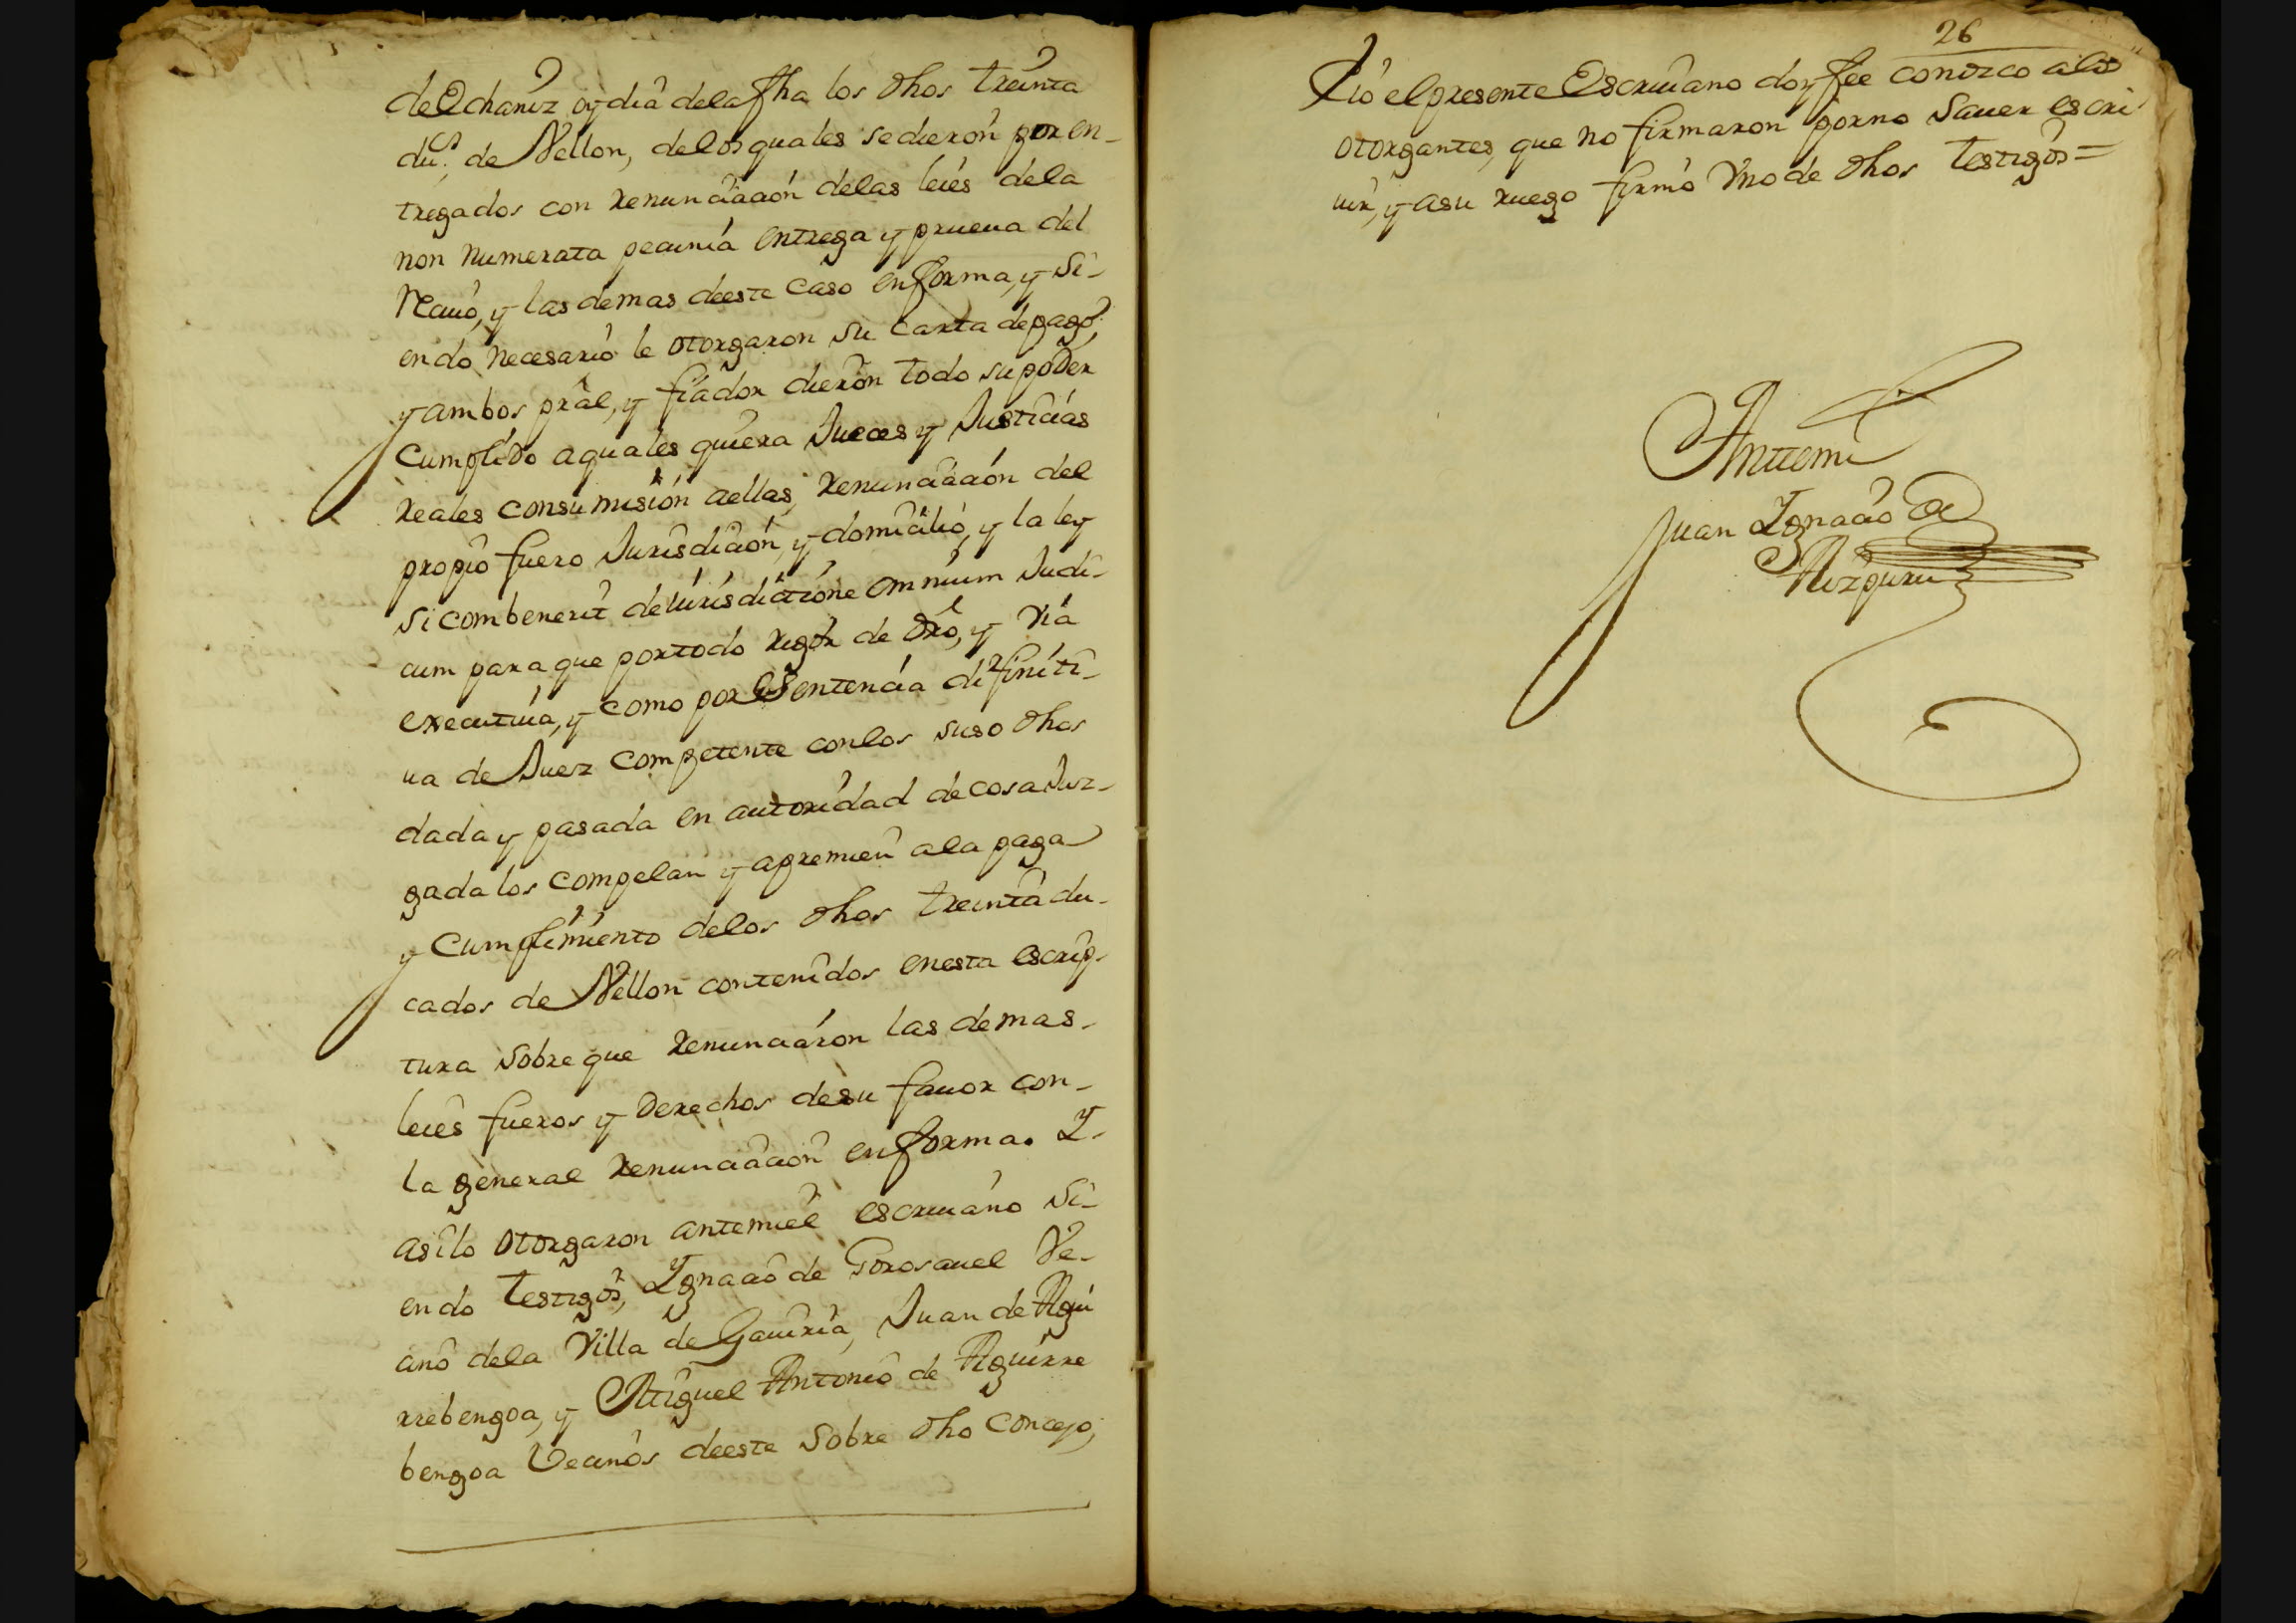 de Echaniz oy dia de la fha los dhos treinta
du.s de Vellon, de los quales se dieron por en-
tregados con renunciacion de las leies de la
non numerata pecunia entrega y prueua del
Reciuo, y las demas de este caso en forma, y si-
endo necesario le otorgaron su carta de pago,
y ambos pral, y fiador dieron todo su poder
cumplido a quales quiera Jueces y Justicias
reales con sumision a ellas, renunciacion del
propio fuero Jurisdicion, y domicilio, y la ley
si combenerit de iurisdictione omnium Judi-
cum para que por todo rigor de dro, y via
executiua, y como por sentencia difiniti-
ua de Juez competente con los suso dhos
dada y pasada en autoridad de cosa Juz-
gada los compelan y apremien a la paga
y cumplimiento de los dhos treinta du-
cados de Vellon contenidos en esta escrip-
tura sobre que renunciaron las demas-
leies fueros y derechos de su fauor con-
la general renunciacion en forma. Y-
asi lo otorgaron ante mi el escriuano si-
endo testigos, Ygnacio de Gorosauel Ve-
cino de la Villa de Gauiria, Juan de Agui
rrebengoa, y Miguel Antonio de Aguirre
bengoa Vecinos de este sobre dho concejo,
26
Yo el presente Escriuano doy fee conozco a los
otorgantes, que no firmaron por no sauer escri
uir, y a su ruego firmó Vno de dhos testigos =
Antemi
Juan Ygnacio de
Aizpuru